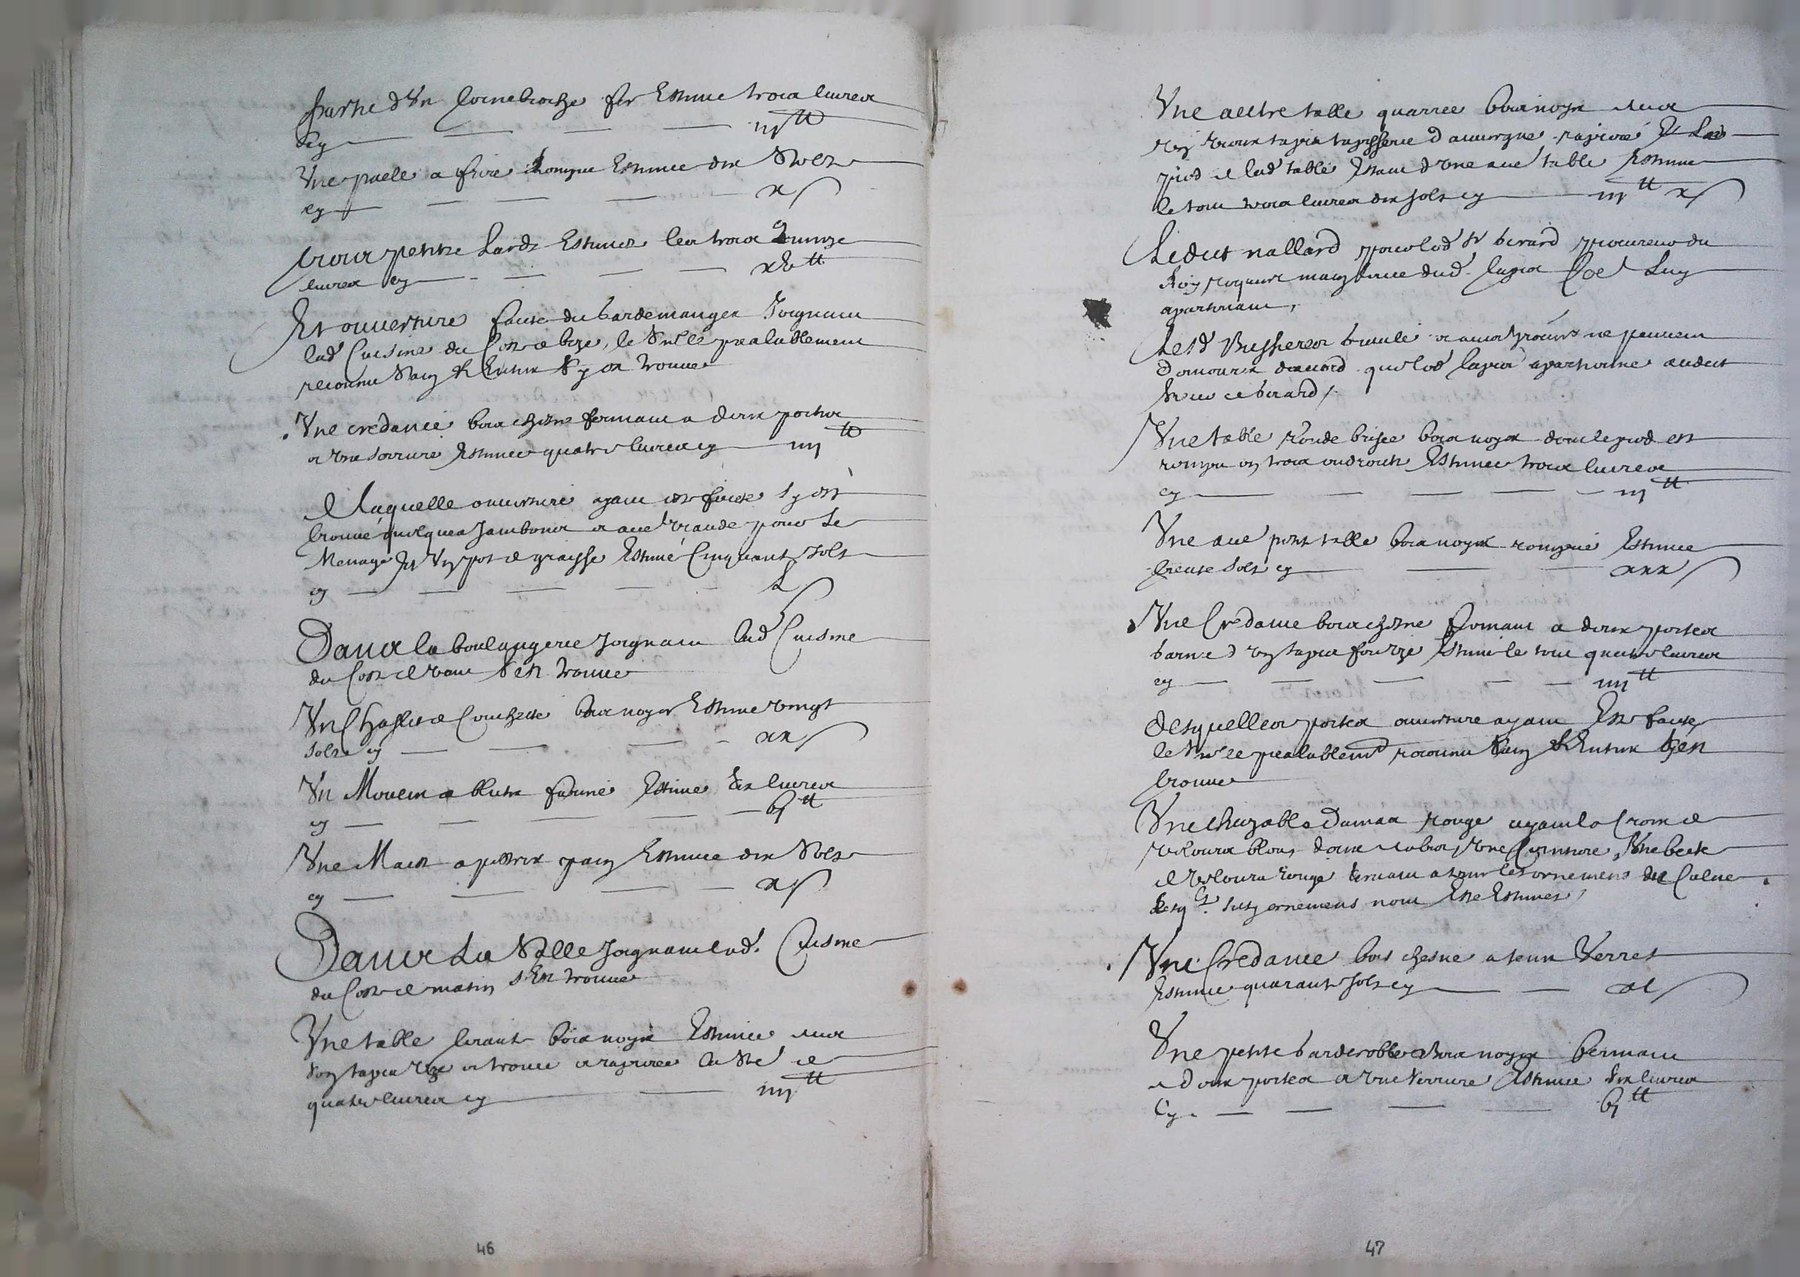 partie d'Un tornebroche fer Estimé trois livres
cy iij ħ
Une paele a frire Rompue Estimee dix Solz
cy x s
trois petits Lards Estimes les trois Quinze
livres cy xv ħ
Et ouverture faite du Gardemanger Joignant
lad Cuisine du Costé de bize, le Scellé prealablement
reconnu Sain & Entier S'y est trouvé
Une credance bois chesne fermant a deux portes
et une serrure Estimee quatre livres cy iiij ħ
A laquelle ouverture ayant este faite S'y est
trouvé quelques Jambons et autre viande pour Le
Menage Et Un pot de graisse Estimé Cinquante solz
cy L s
Dans la boulangerie Joignant lad Cuisine
du Costé de vent S'est trouvé
Un Chaslit de Couchette bois noyer Estimé vingt
solz cy xx s
Un Moulin a bluter farine Estimé Six livres
cy vj ħ
Une Maict a pestrir pain Estimee dix Solz
cy x s
Dans La Salle Joignant lad. Cuisine
du Costé de matin s'Est trouvé
Une table tirante bois noyer Estimée avec
Son tapis et trouée et rapiecée la Ste de
quatre livres cy iiij ħ
46
Une autre table quarree bois noyer avec
un vieux tapis tapisserie d'auvergne rapiecé & Les
pied de lad table Estant d'une autre table Estimé
le tout trois livres dix solz cy iij ħ x s
Ledict nallard pour led Sr berard procureur du
Roy requert main levee dud. tapis Co̅e̅ Luy
apartenant,
demeurer d'accord que led tapis apartienne audict
Sieur de berard /
Une table ronde brisee bois noyer dont le pied est
rompu en trois endroits Estimee trois livres
cy iij ħ
Une autre petite table bois noyer rompue Estimee
trente solz cy xxx s
Une Credance bois chesne fermant a deux portes
garnie d'un tapis fort uzé Estimé le tout quatre livres
cy iiij ħ
desquelles portes ouverture ayant Este faite
le Scellé prealablement reconnu Sain & Entier S'est
trouvé
Une Chazuble Damas Rouge ayant la Croix de
velours bleu, deux aubes, Une Ceinture, Une boete
de Velours rouge servant a tenir les ornemens du Calice
Lesqls susd ornemens n'ont Esté Estimés /
Une Credance bois chesne a tenir Verres
Estimee quarante solz cy xl s
Une petite Garderobbe bois noyer fermant
a deux portes et une serrure Estimee Six livres
Cy. vj ħ
47